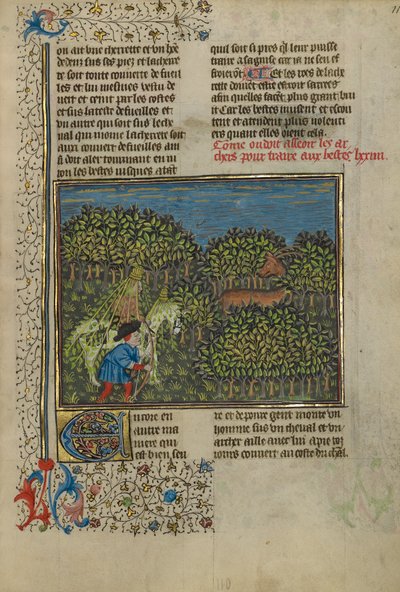 on ait une cherrette et un hõe
dedens sus ses piez et la cherre
te soit toute couuerte de fueil
les et lui mesmes vestu de
vert et ceint par les costes
et sus la teste de fueilles et
un autre qui soit sus le che
ual qui moine la cherrete soit
aux couuert de fueilles ain
si doit aler tournant en ui
ron les bestes iusques atãt
quil soit si pres q̃l leur puisse
traire a sa guise car ia ne sen ef
Et les roes de la che
rete doiuent
afin quelles facẽt plus grant bru
it Car les bestes musent et escou
tent et atendent plus volenti
ers quant elles oient cela.
Cõme on doit les ar
chers pour traire aux bestes lxxiiii.
Encore en
autre ma
niere qui
est bien seu
re et de poure gent monte un
homme sus un cheual et un
archer aille auec lui a pie tou
iours couuert au coste du chãl.
110